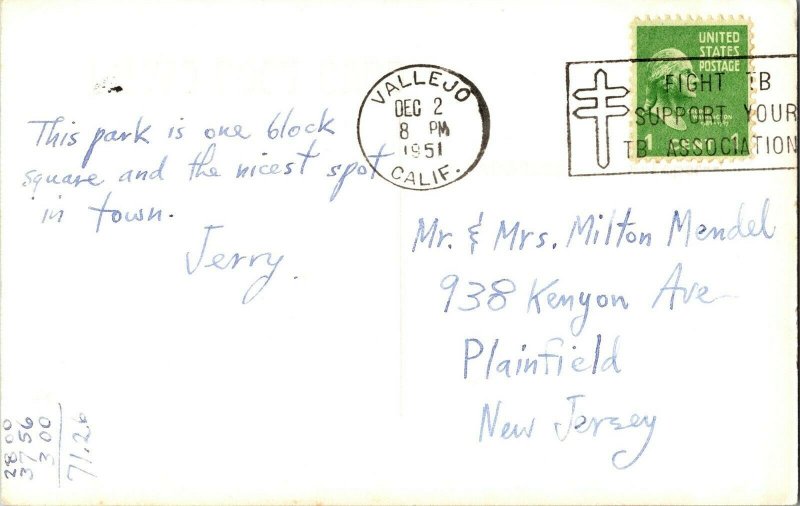 This park is one block
square and the nicest spot
in town.
Jerry.
VALLEJO
DEC 2
8 PM
1951
CALIF.
UNITED
STATES
POSTAGE
1 1
FIGHT TB
SUPPORT YOUR
TB ASSOCIATION
Mr. & Mrs. Milton Mendel
938 Kenyon Ave
Plainfield
New Jersey
28 00
37 56
3 00
71.26